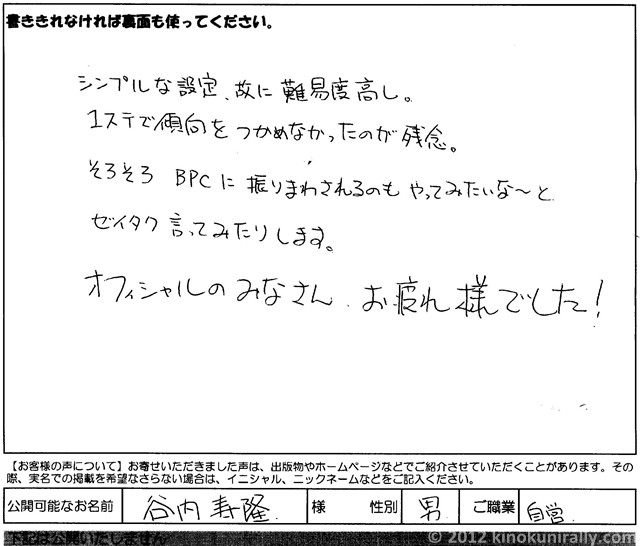 書ききれなければ裏面も使ってください。
シンプルな設定、故に難易度高し。
1ステで傾向をつかめなかったのが残念。
そろそろ BPCに振りまわされるのもやってみたいな〜と
ゼイタク言ってみたりします。
オフィシャルのみなさん、お疲れ様でした!
【お客様の声について】お寄せいただきました声は、出版物やホームページなどでご紹介させていただくことがあります。その
際、実名での掲載を希望なさらない場合は、イニシャル、ニックネームなどをご記入ください。
公開可能なお名前 谷内寿隆 様 性別 男 ご職業 自営
下記は公開いたしません
© 2012 kinokunirally.com